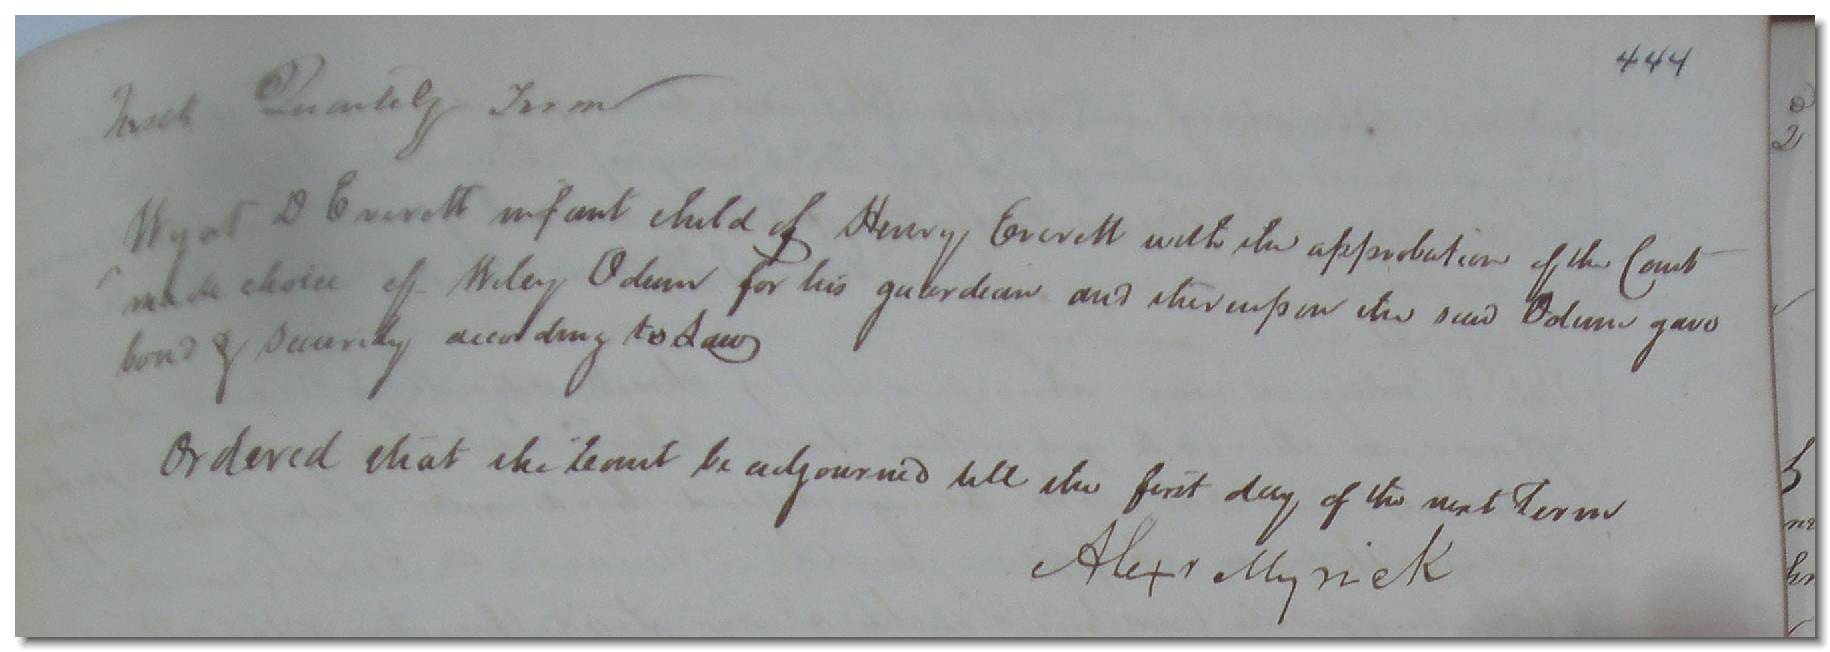 444
Quarterly Term
Wyat D Everett infant child of Henry Everett with the approbation of the Court
made choice of Wiley Odum for his guardian and thereupon the said Odum gave
bond & Security according to Law
Ordered that the Court be adjourned till the first day of the next Term
Alexr Myrick